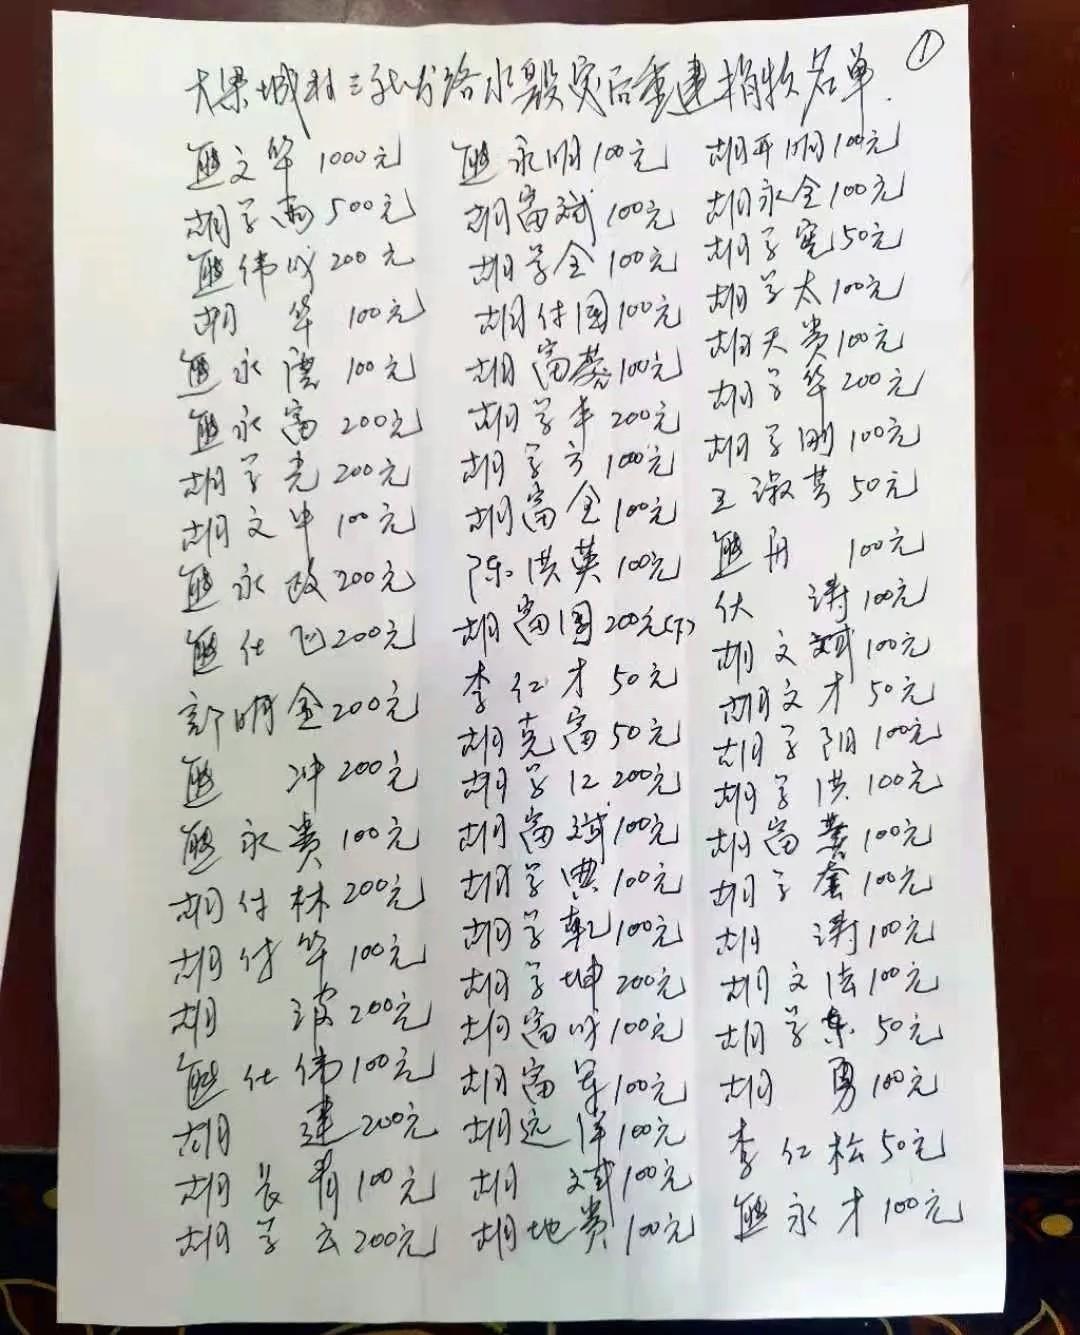 ①
大梁城村三社公路水毁灾后重建捐款名单.
熊文华 1000元 熊永明100元 胡开明100元
胡学 500元 胡富斌100元 胡永全100元
熊伟成200元 胡学全100元 胡学宽50元
胡 华 100元 胡付国100元 胡学太100元
熊永 100元 胡富 100元 胡天贵100元
熊永富200元 胡学丰200元 胡学华200元
胡学光200元 胡学方100元 胡学刚100元
胡文中100元 胡富全100元 王淑芳50元
熊永政200元 陈洪英100元 熊丹 100元
熊仕飞200元 胡富国200元 伏 涛100元
许明金200元 李仁才50元 胡文斌100元
熊 冲200元 胡克富50元 胡文才50元
熊永贵100元 胡学仁200元 胡学阳100元
胡付林200元 胡富斌100元 胡学洪100元
胡付华100元 胡学典100元 胡富 100元
胡 波200元 胡学乾100元 胡学奎100元
熊仕伟100元 胡学坤200元 胡 涛100元
胡 建200元 胡富成100元 胡文法100元
胡长青100元 胡富军100元 胡学东50元
胡学云200元 胡远洋100元 胡 勇100元
胡 斌100元 李仁松50元
胡地贵100元 熊永才100元